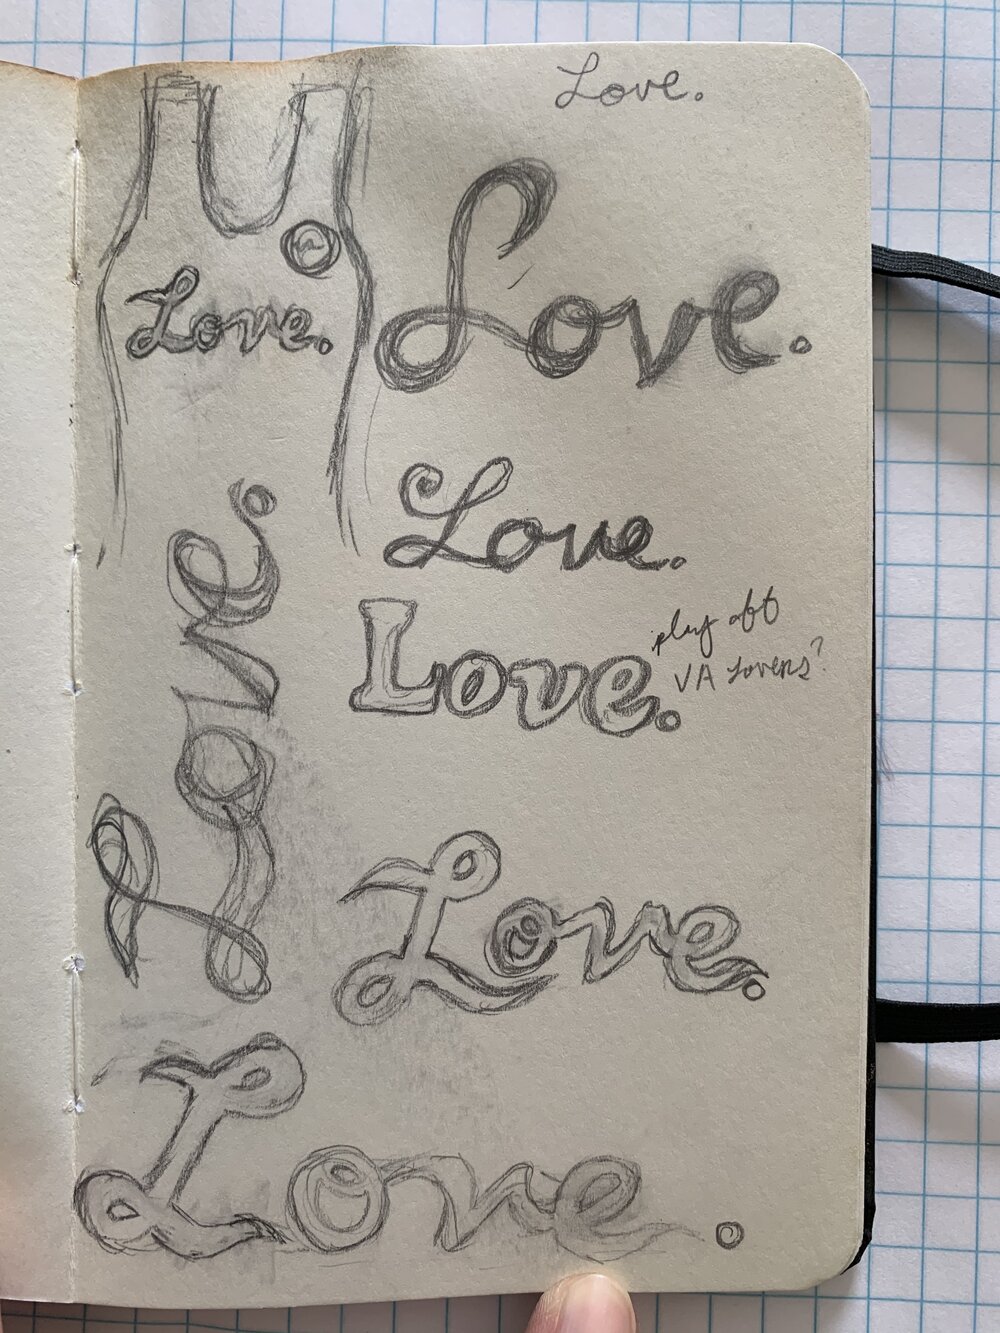 Love.
Love.
Love.
Love.
Love.
play off
VA Lovers?
Love.
Love.
Love.